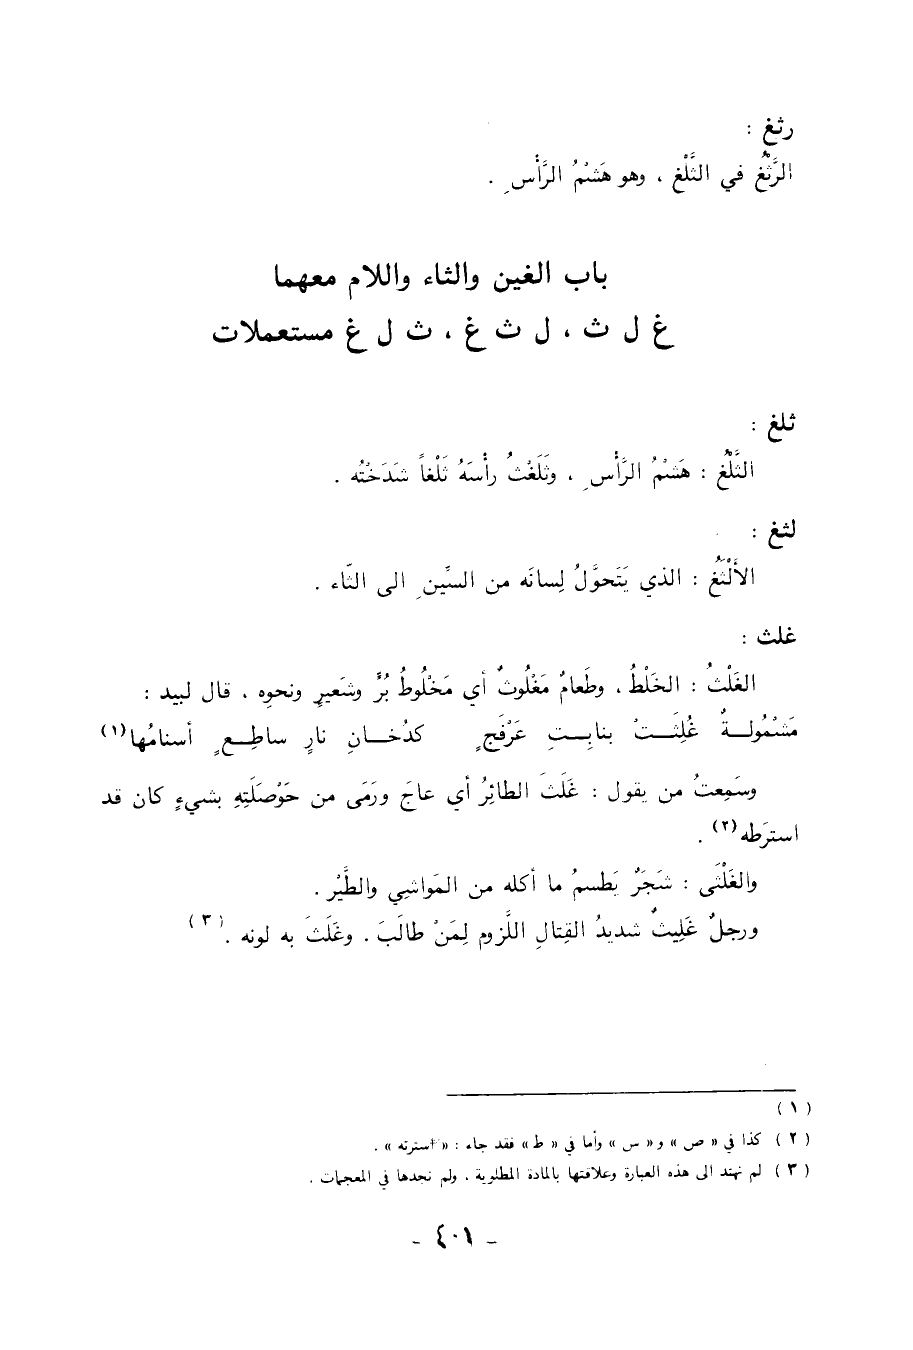 رثغ :
الرَّثْغُ في الثَّلْغ ، وهو هَشْمُ الرَّأْسِ .
باب الغين والثاء واللام معهما
غ ل ث ، ل ث غ ، ث ل غ مستعملات
ثلغ :
الثَّلْغُ : هَشْمُ الرَّأْسِ ، وثَلَغْتُ رأسَهُ ثَلْغاً شَدَخْتُه .
لثغ :
الأَلْثَغُ : الذي يَتَحوَّلُ لِسانَه من السِّينِ الى الثّاء .
غلث :
الغَلْثُ : الخَلْطُ ، وطَعامٌ مَغْلُوثٌ أي مَخْلُوطُ بُرٍّ وشَعيرٍ ونحوِه ، قال لبيد :
مَشْمُولةٌ غُلِثَتْ بنابِتِ عَرْفَجٍ كدُخانِ نارٍ ساطِعٍ أسنامُها (١)
وسَمِعتُ من يقول : غَلَثَ الطائِرُ أي عاجَ ورَمَى من حَوْصَلَتِهِ بشيءٍ كان قد
استرَطه (٢) .
والغَلْثَى : شَجَرٌ يَطسمُ ما أكله من المَواشِي والطَّيْر .
ورجلٌ غَلِيثٌ شديدُ القِتالِ اللَّزوم لِمَنْ طالَبَ . وغَلَثَ به لونه . (٣)
(١)
(٢) كذا في « ص » و« س » وأما في « ط » فقد جاء : « استرته » .
(٣) لم نهتد الى هذه العبارة وعلاقتها بالمادة المطلوبة ، ولم نجدها في المعجمات .
- ٤٠١ -